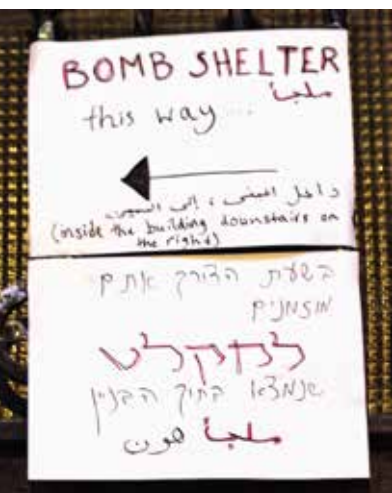 BOMB SHELTER
ملجأ
this way...
داخل المبنى، إلى اليمين
(inside the building downstairs on
the right)
בשעת הצורך אתם
מוזמנים
למקלט
שנמצא בתוך הבניין
ملجأ هون